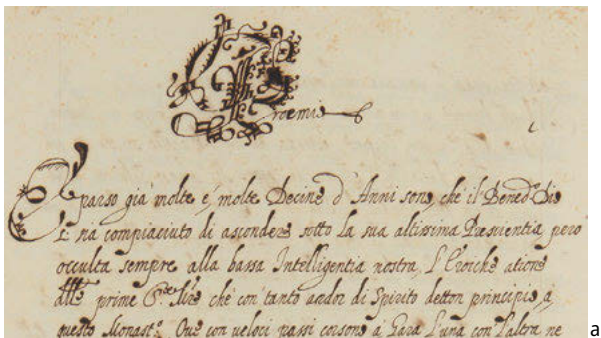 Proemio
E parso già molte e, molte Decine d'Anni sono, che il Bened.º Dio
si ha compiaciuto di ascondere sotto La sua altissima Prescientia, pero
occulta sempre alla bassa Intelligentia nostra, l'Eroiche ations
prime che con tanto ardor di Spirito detton principio, a,
questo Monast.º Oue con veloci passi corsono à Gara l'una con l'altra ne
a